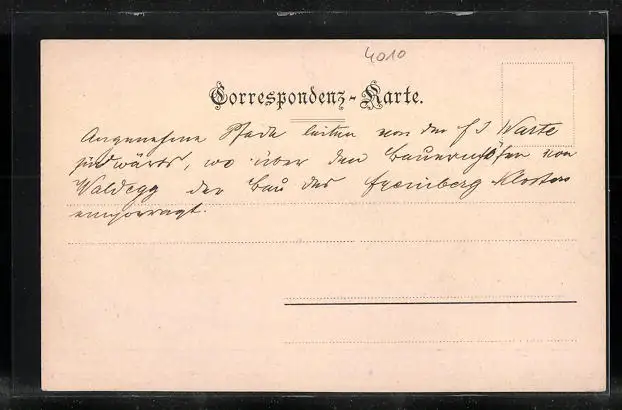 4010
Correspondenz-Karte.
Angenehme Pfade leiten von der FJ Warte
südwärts, wo über den Bauernhöfen von
Waldegg der Bau des Freinberg Klosters
emporragt.